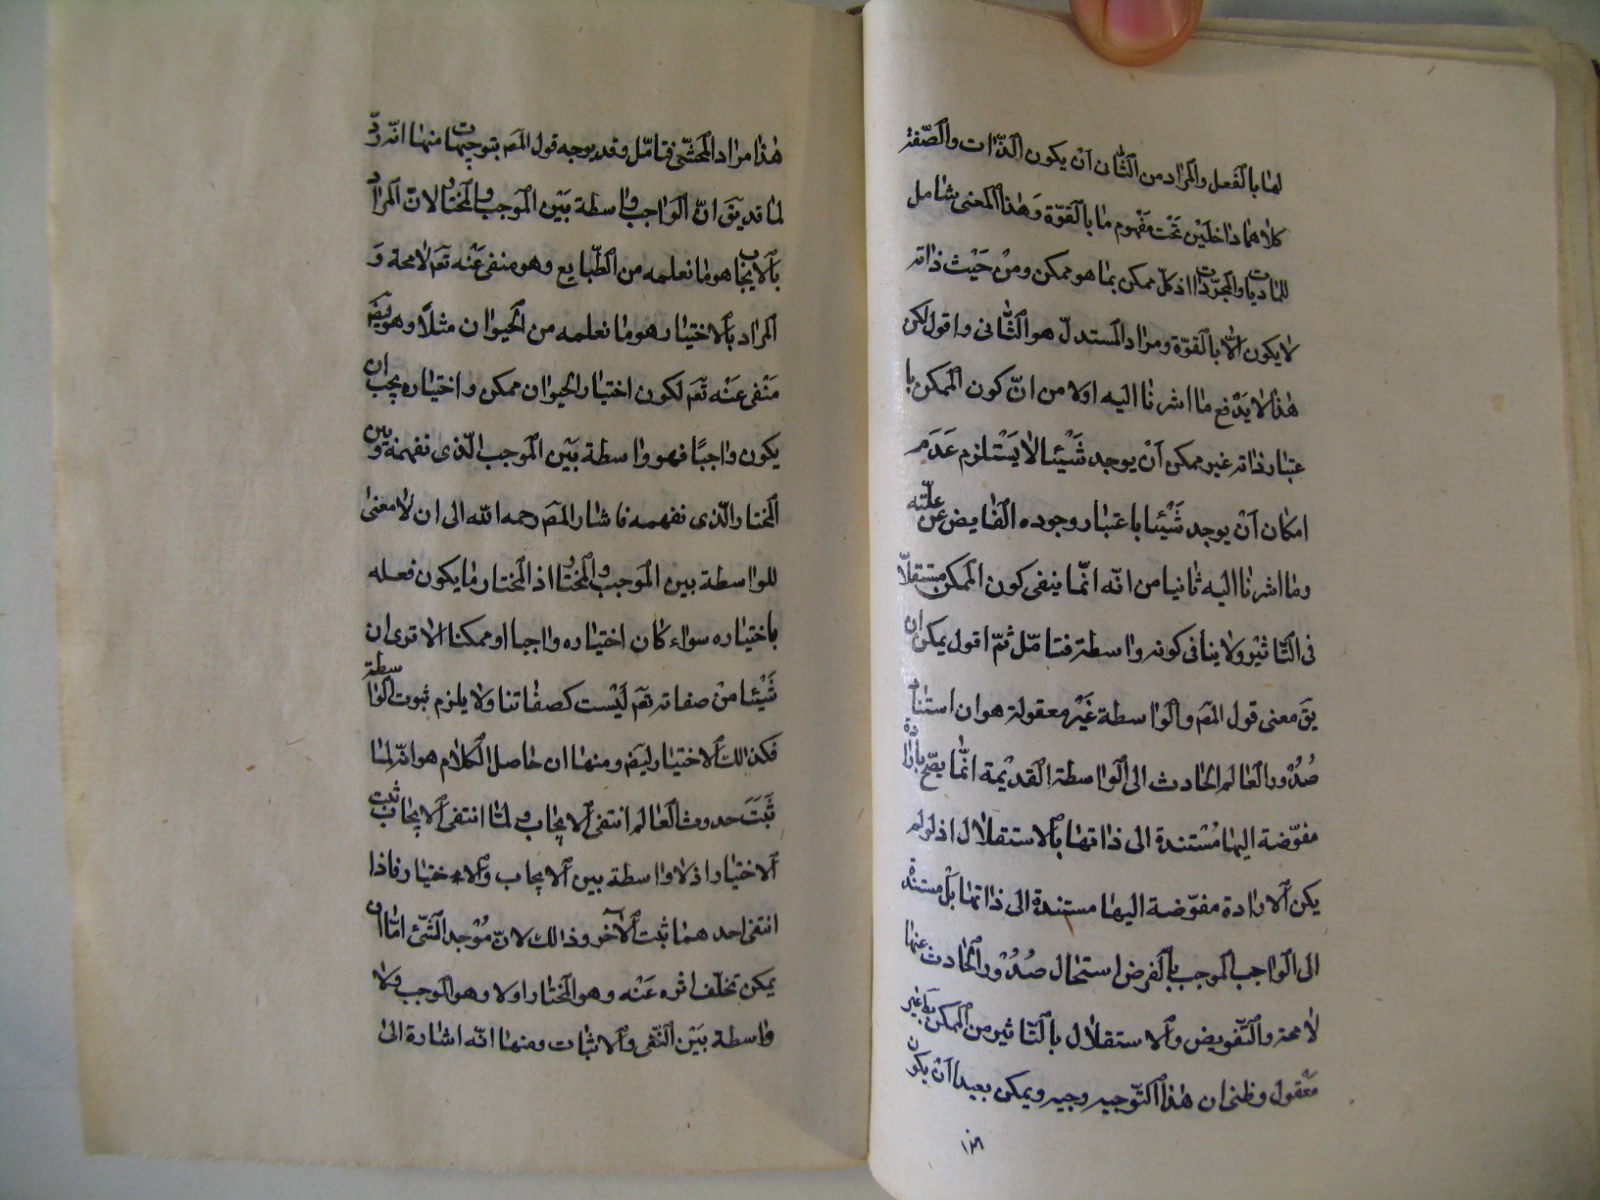 لها بالفعل والمراد من الثاني ان يكون الذات والصفة
كلاهما داخلين تحت مفهوم ما بالقوة وهذا المعنى شامل
للماديات والمجردات اذ كل ممكن بما هو ممكن ومن حيث ذاته
لا يكون الا بالقوة ومراد المستدل هو الثاني واقول لكن
هذا لا يدفع ما اشرنا اليه اولا من ان كون الممكن با
عتبار ذاته غير ممكن ان يوجد شيئا لا يستلزم عدم
امكان ان يوجد شيئا باعتبار وجوده الفايض عن علته
وما اشرنا اليه ثانيا من انه انما ينفى كون الممكن مستقلا
في التاثير ولا ينافي كونه واسطة فتامل ثم اقول يمكن ان
يق معنى قول المصم والواسطة غير معقولة هو ان استناد
صدور العالم الحادث الى الواسطة القديمة انما يصح بارادة
مفوضة اليها مستندة الى ذاتها بالاستقلال اذ لو لم
يكن الارادة مفوضة اليها مستندة الى ذاتها بل مستندة
الى الواجب الموجب بالفرض استحال صدور الحادث عنها
لا محة والتفويض والاستقلال بالتاثير من الممكن غير
معقول وظني ان هذا التوجيه وجيه ويمكن بعيدا ان يكون
هذا مراد المحشى فتامل وقد يوجه قول المصم بتوجيهات منها انه رد
لما قد يق ان الواجب واسطة بين الموجب والمختار لان المراد
بالايجاب هو ما نعلمه من الطبايع وهو منفى عنه تعم لا محة و
المراد بالاختيار هو ما نعلمه من الحيوان مثلا وهو ايضم
منفى عنه تعم لكون اختيار الحيوان ممكن واختياره يجب ان
يكون واجبا فهو واسطة بين الموجب الذى نفهمه وبين
المختار الذى نفهمه فاشار المصم رحمه الله الى ان لا معنى
للواسطة بين الموجب والمختار اذ المختار ما يكون فعله
باختياره سواء كان اختياره واجبا او ممكنا الا ترى ان
شيئا من صفاته تعم ليست كصفاتنا ولا يلزم ثبوت الواسطة
فكذالك الاختيار ايضم ومنها ان حاصل الكلام هو انه لما
ثبت حدوث العالم انتفى الايجاب ولما انتفى الايجاب ثبت
الاختيار اذ لا واسطة بين الايجاب والاختيار فاذا
انتفى احدهما ثبت الآخر وذالك لان موجد الشئ اما ان
يمكن تخلف اثره عنه وهو المختار اولا وهو الموجب ولا
واسطة بين النفى والاثبات ومنها انه اشارة الى